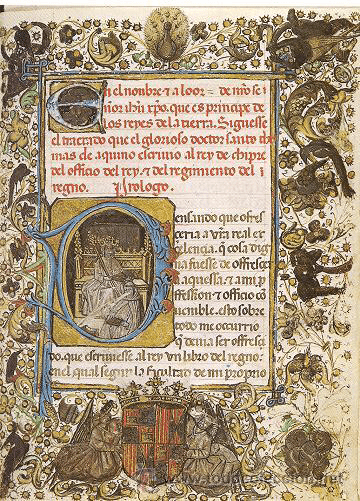 En el nonbre & a loor de nr̃o se
ñor ih̃u xp̃o. que es principe de
los reyes de la tierra. Siguesse
el tractado que el glorioso doctor santo tho
mas de aquino escriuio al rey de chipre
del officio del rey. & del regimiento del
regno. Prologo.
Pensando que ofres
ceria a vr̃a real ex
celencia. q̃ cosa dig
na fuesse de offresçer
a quella. & a mi p
ffession & officio co
uenible. esto sobre
todo me occurrio
q̃ deuia ser offresci
do. que escriuiesse al rey vn libro del regno.
en el qual segun la facultad de mi proprio
www.todocoleccion.net